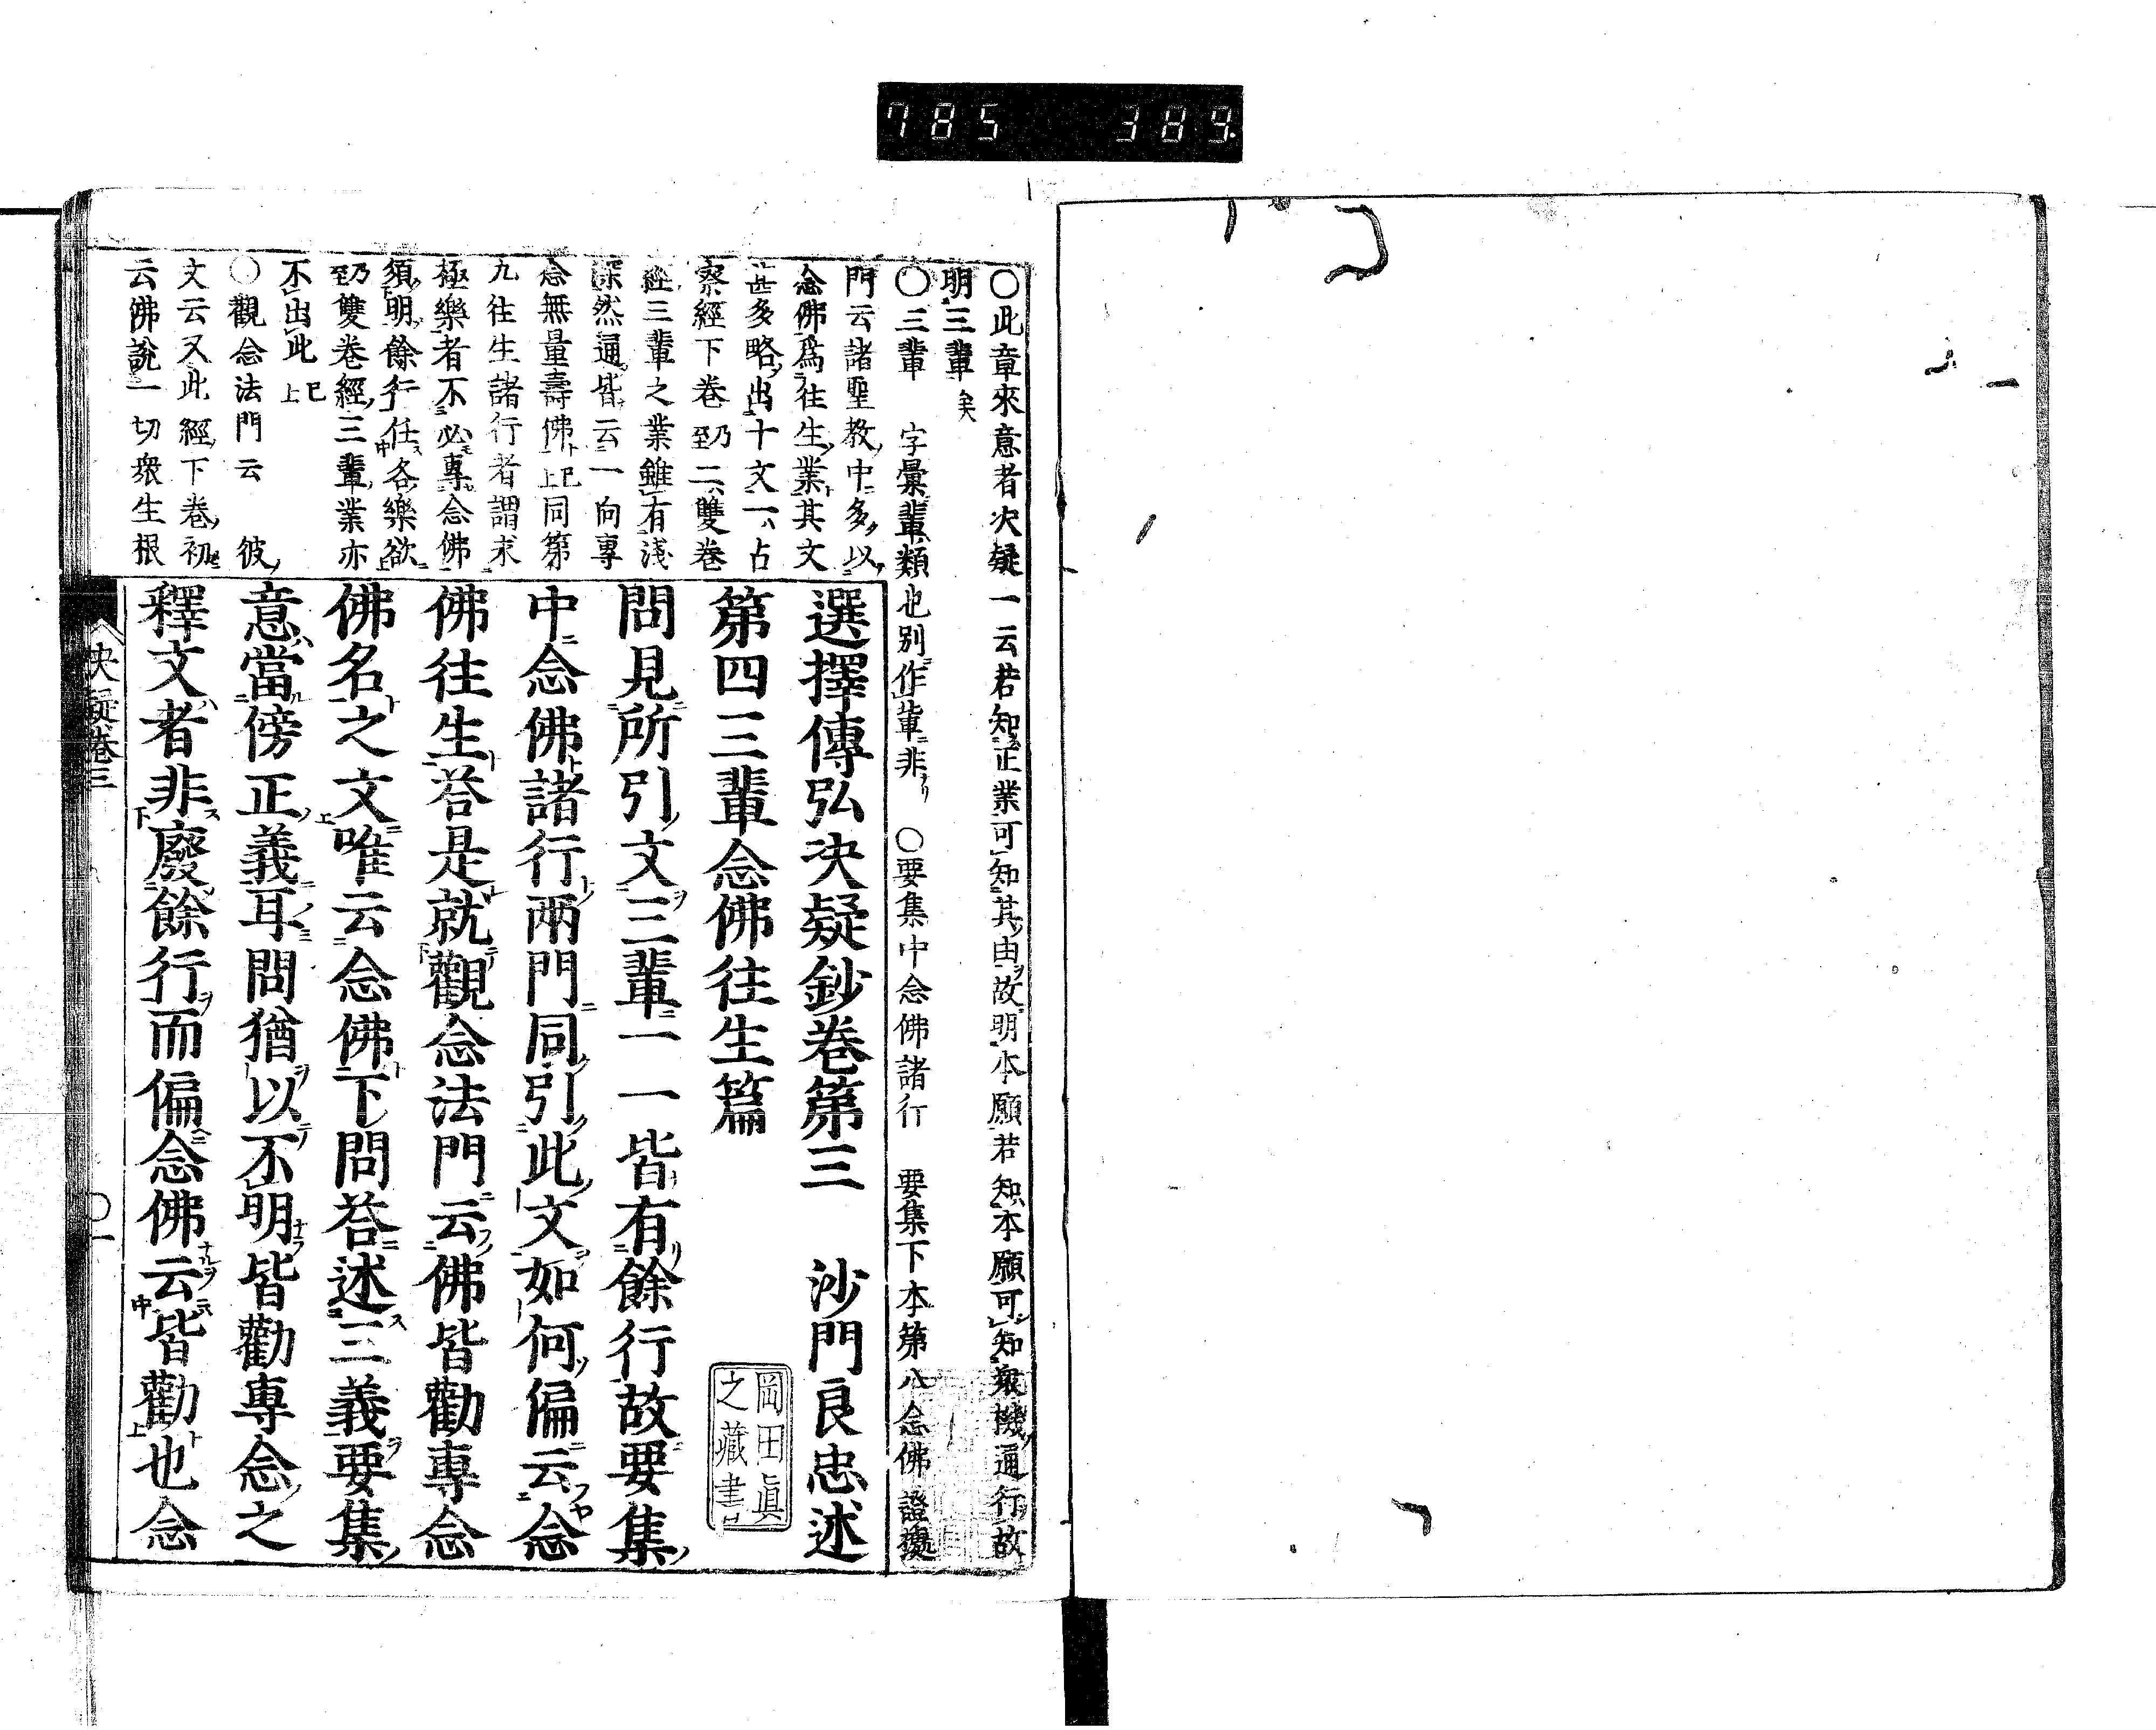 785 389.
○此章來意者決疑一云若知正業可知其由故明本願若知本願可知衆機通行故
明三輩矣
○三輩 字彙輩類也別作軰非 ○要集中念佛諸行 要集下本第八念佛證據
門云諸聖教中多以
念佛爲往生業其文
甚多略出十文一占
察經下卷乃至二雙卷
經三輩之業雖有淺
深然通皆云一向專
念無量壽佛已上同第
九往生諸行者謂求
極樂者不必專念佛
須明餘行任各樂欲
乃至雙卷經三輩業亦
不出此已上
○觀念法門云 彼
文云又此經下卷初
云佛說一切衆生根
選擇傳弘決疑鈔卷第三 沙門良忠述
第四三輩念佛往生篇
問見所引文三輩一一皆有餘行故要集
中念佛諸行兩門同引此文如何偏云念
佛往生荅是就觀念法門云佛皆勸專念
佛名之文唯云念佛下問荅述三義要集
意當傍正義耳問猶以不明皆勸專念之
釋文者非廢餘行而偏念佛云皆勸也念
決疑卷三
○一
岡田眞
之藏書